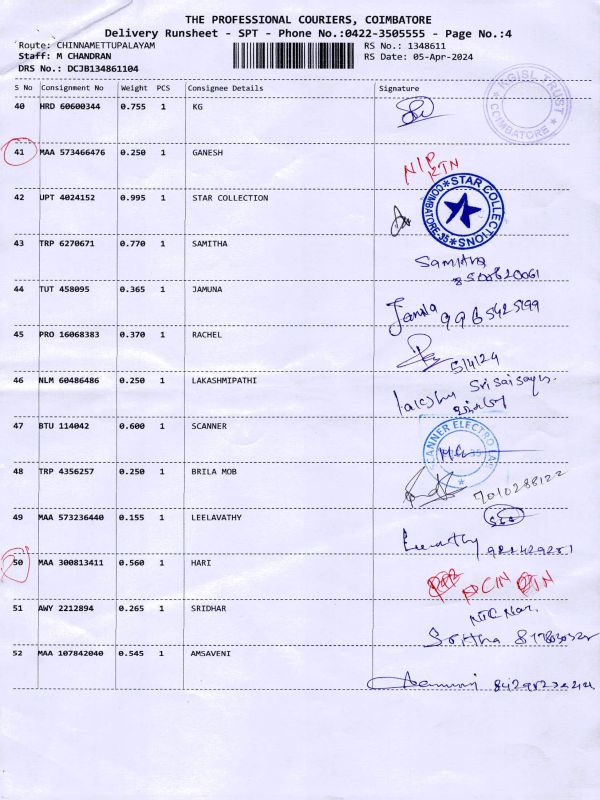 THE PROFESSIONAL COURIERS, COIMBATORE
Delivery Runsheet - SPT - Phone No.:0422-3505555 - Page No.:4
Route: CHINNAMETTUPALAYAM RS No.: 1348611
Staff: M CHANDRAN RS Date: 05-Apr-2024
DRS No.: DCJB134861104
S No Consignment No Weight PCS Consignee Details Signature
NGISL TRUST COIMBATORE
40 HRD 60600344 0.755 1 KG
41 MAA 573466476 0.250 1 GANESH
N/P RTN
42 UPT 4024152 0.995 1 STAR COLLECTION
STAR COLLECTIONS COIMBATORE-35
43 TRP 6270671 0.770 1 SAMITHA
Samitha
44 TUT 458095 0.365 1 JAMUNA
45 PRO 16068383 0.370 1 RACHEL
5/4/24
46 NLM 60486486 0.250 1 LAKASHMIPATHI
47 BTU 114042 0.600 1 SCANNER
SCANNER ELECTRO
48 TRP 4356257 0.250 1 BRILA MOB
7010288122
49 MAA 573236440 0.155 1 LEELAVATHY
50 MAA 300813411 0.560 1 HARI
51 AWY 2212894 0.265 1 SRIDHAR
52 MAA 107842040 0.545 1 AMSAVENI